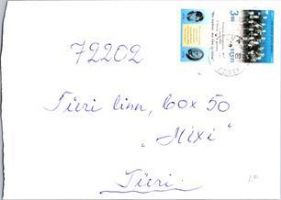 72202
Türi linn, box 50
"Mixi"
Türi.